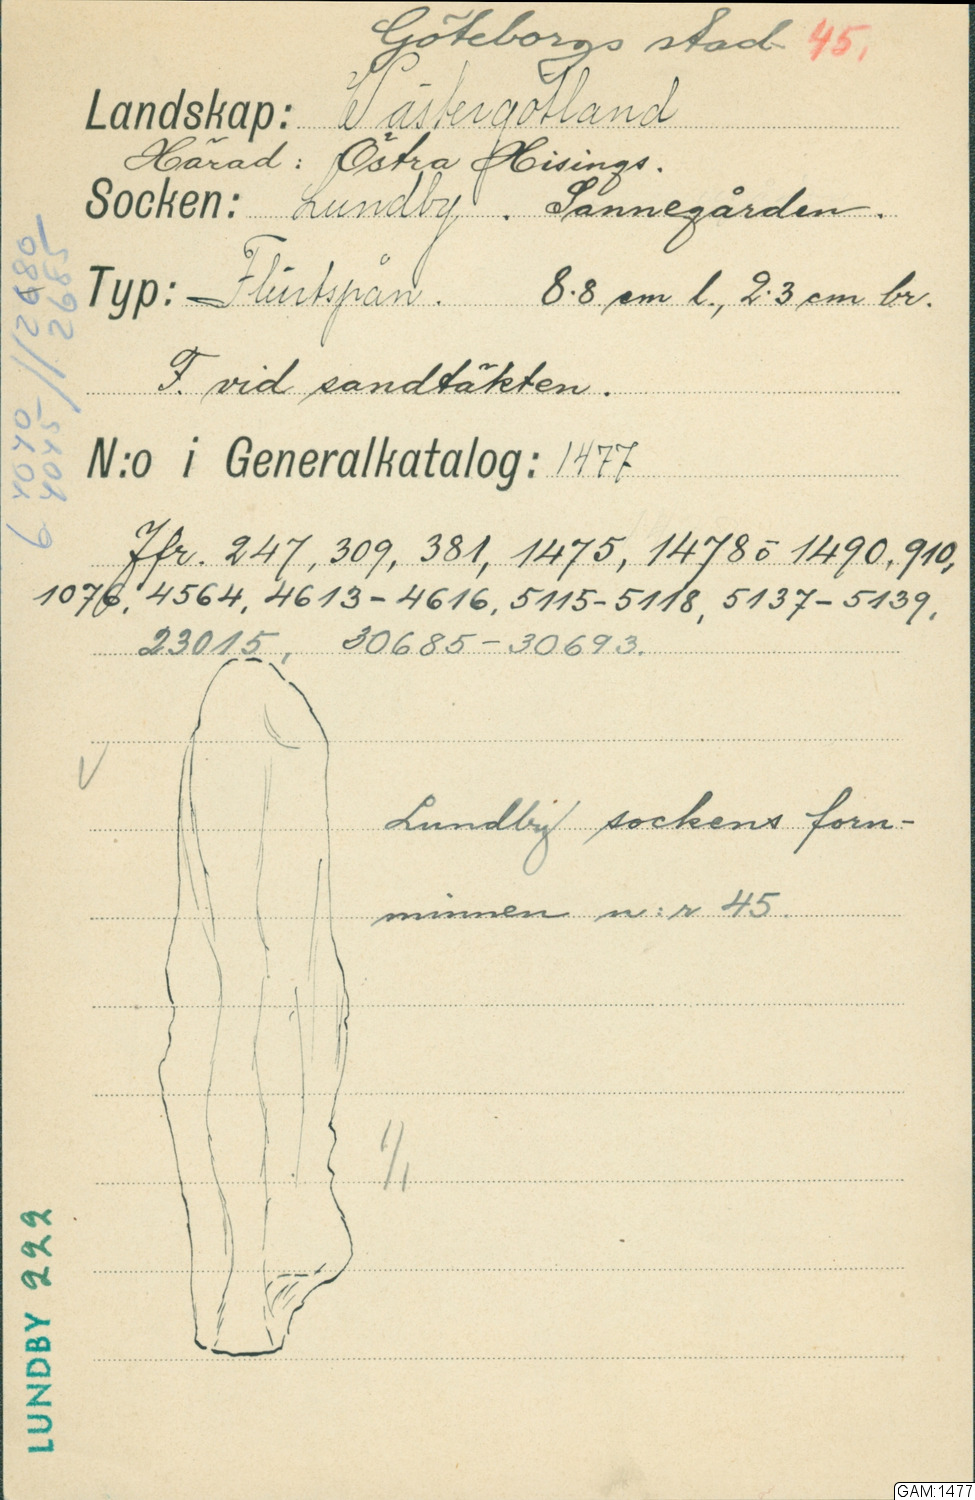 Göteborgs stad 45.
Landskap: Västergötland
Härad: Östra Hisings.
Socken: Lundby. Sannegården.
Typ: Flintspån. 8.8 cm l., 2.3 cm br.
F. vid sandtäkten.
N:o i Generalkatalog: 1477
Jfr. 247, 309, 381, 1475, 1478 o 1490, 910,
1076, 4564, 4613-4616, 5115-5118, 5137-5139,
23015, 30685-30693.
Lundby sockens forn-
minnen n:r 45.
1/1
LUNDBY 222
GAM:1477